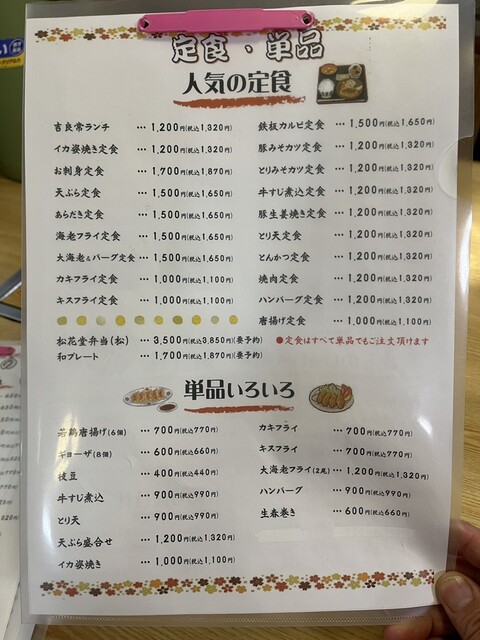 定食・単品
人気の定食
吉良常ランチ … 1,200円(税込1,320円)
イカ姿焼き定食 … 1,200円(税込1,320円)
お刺身定食 … 1,700円(税込1,870円)
天ぷら定食 … 1,500円(税込1,650円)
あらだき定食 … 1,500円(税込1,650円)
海老フライ定食 … 1,500円(税込1,650円)
大海老&バーグ定食 … 1,500円(税込1,650円)
カキフライ定食 … 1,000円(税込1,100円)
キスフライ定食 … 1,000円(税込1,100円)
鉄板カルビ定食 … 1,500円(税込1,650円)
豚みそカツ定食 … 1,200円(税込1,320円)
とりみそカツ定食 … 1,200円(税込1,320円)
牛すじ煮込定食 … 1,200円(税込1,320円)
豚生姜焼き定食 … 1,200円(税込1,320円)
とり天定食 … 1,200円(税込1,320円)
とんかつ定食 … 1,200円(税込1,320円)
焼肉定食 … 1,200円(税込1,320円)
ハンバーグ定食 … 1,200円(税込1,320円)
唐揚げ定食 … 1,000円(税込1,100円)
松花堂弁当(松) … 3,500円(税込3,850円)(要予約)
和プレート … 1,700円(税込1,870円)(要予約)
●定食はすべて単品でもご注文頂けます
単品いろいろ
若鶏唐揚げ(6個) … 700円(税込770円)
ギョーザ(8個) … 600円(税込660円)
枝豆 … 400円(税込440円)
牛すじ煮込 … 900円(税込990円)
とり天 … 900円(税込990円)
天ぷら盛合せ … 1,200円(税込1,320円)
イカ姿焼き … 1,000円(税込1,100円)
カキフライ … 700円(税込770円)
キスフライ … 700円(税込770円)
大海老フライ(2尾) … 1,200円(税込1,320円)
ハンバーグ … 900円(税込990円)
生春巻き … 600円(税込660円)